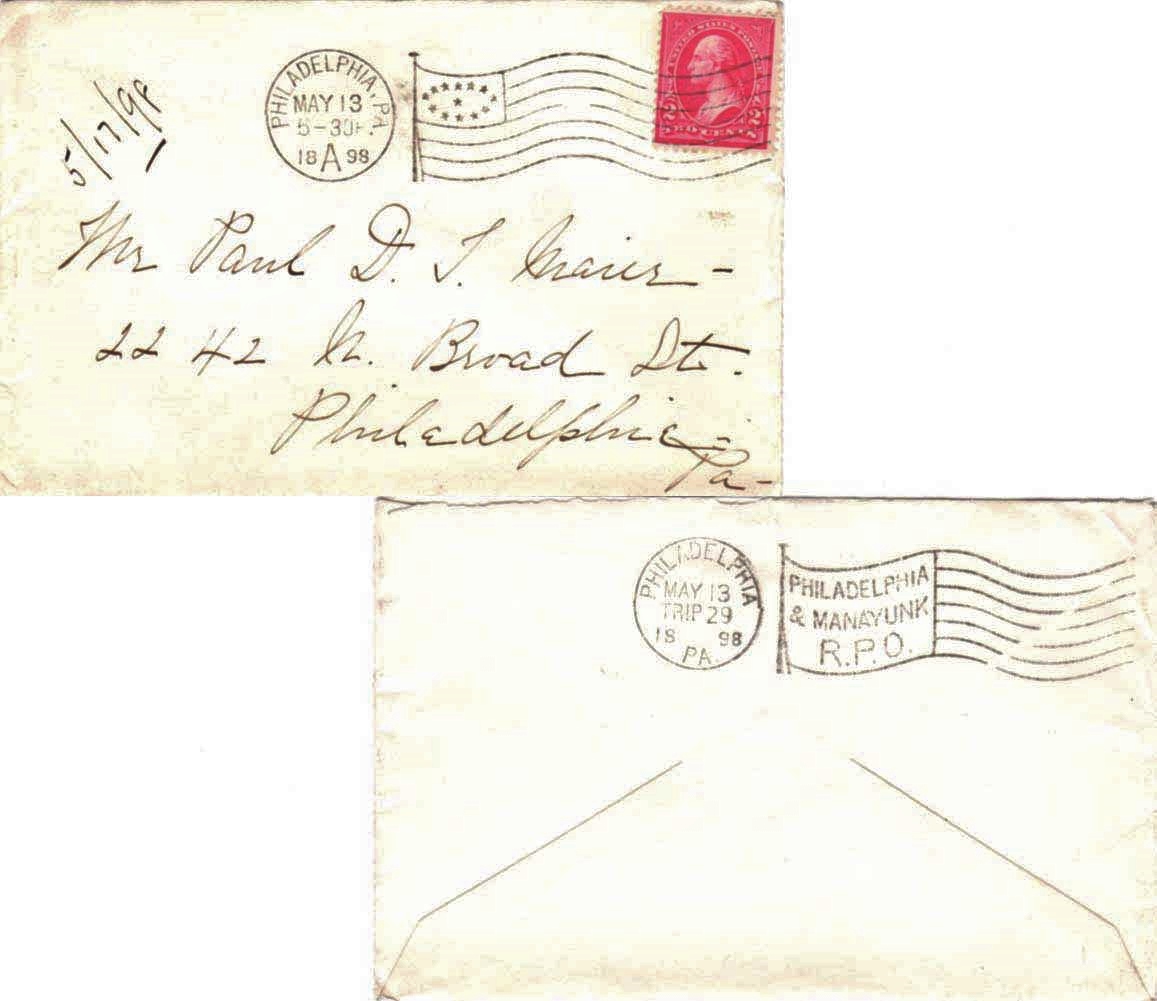 5/17/98
PHILADELPHIA, PA.
MAY 13
5-30P.
18 A 98
UNITED STATES POSTAGE
2 TWO CENTS 2
Mr Paul D. I. Maier -
2242 N. Broad St.
Philadelphia -
Pa -
PHILADELPHIA
MAY 13
TRIP 29
18 98
PA.
PHILADELPHIA
& MANAYUNK
R.P.O.